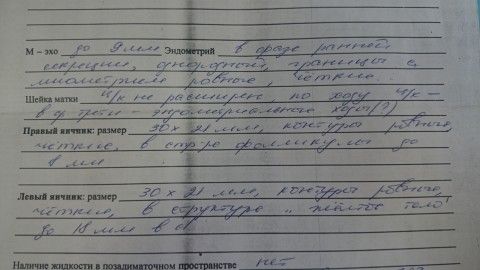 М – эхо до 9 мм Эндометрий в фазе ранней
секреции, однородный, границы с
миометрием ровные, чёткие.
Шейка матки ц/к не расширен по ходу ц/к –
в ср трети – эндометриальные ходы(?)
Правый яичник: размер 30 х 21 мм, контуры ровные,
чёткие, в стр-ре фолликулы до
мм
Левый яичник: размер 30 х 21 мм, контуры ровные,
чёткие, в структуре „жёлтое тело"
до 18 мм в d
Наличие жидкости в позадиматочном пространстве нет